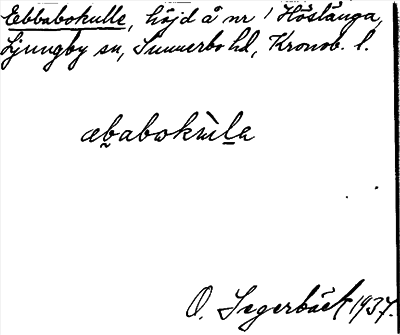 Ebbabokulle, höjd å nr 1 Höslänga,
Ljungby sn, Sunnerbo hd, Kronob. l.
æb̰abokùl̠a
O. Segerbäck 1937.